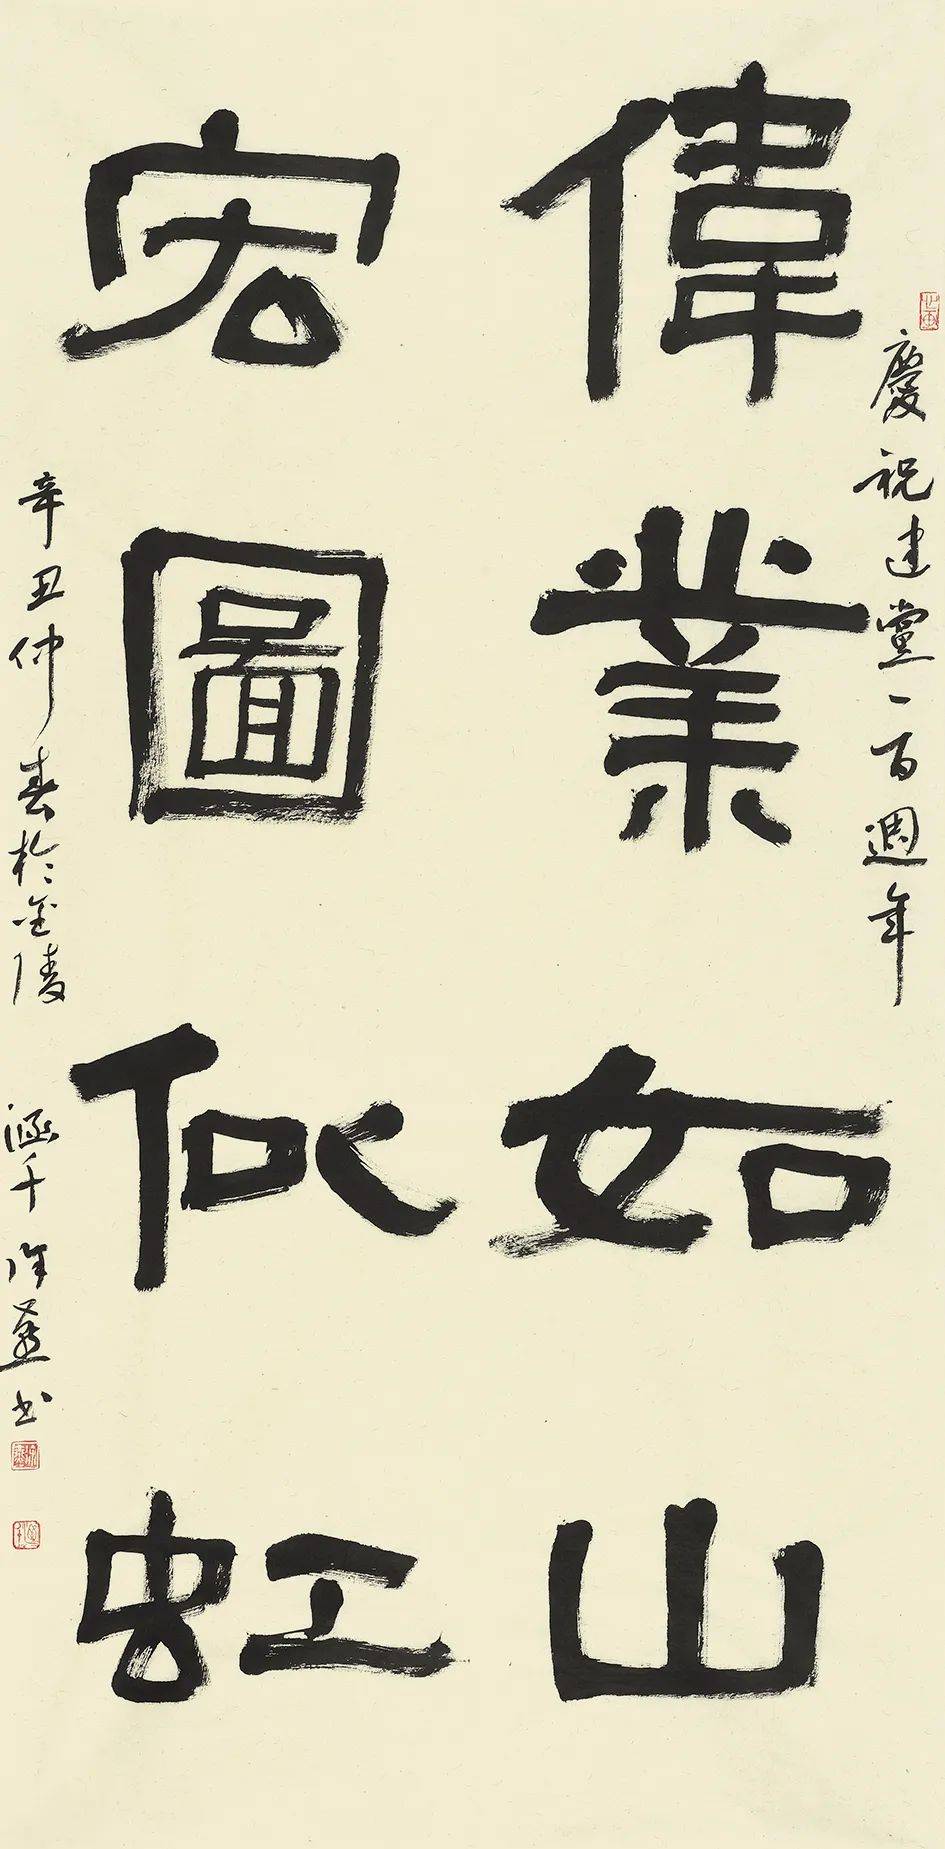 慶祝建黨一百週年
偉業如山
宏圖似虹
辛丑仲春於金陵 涵千 許 书